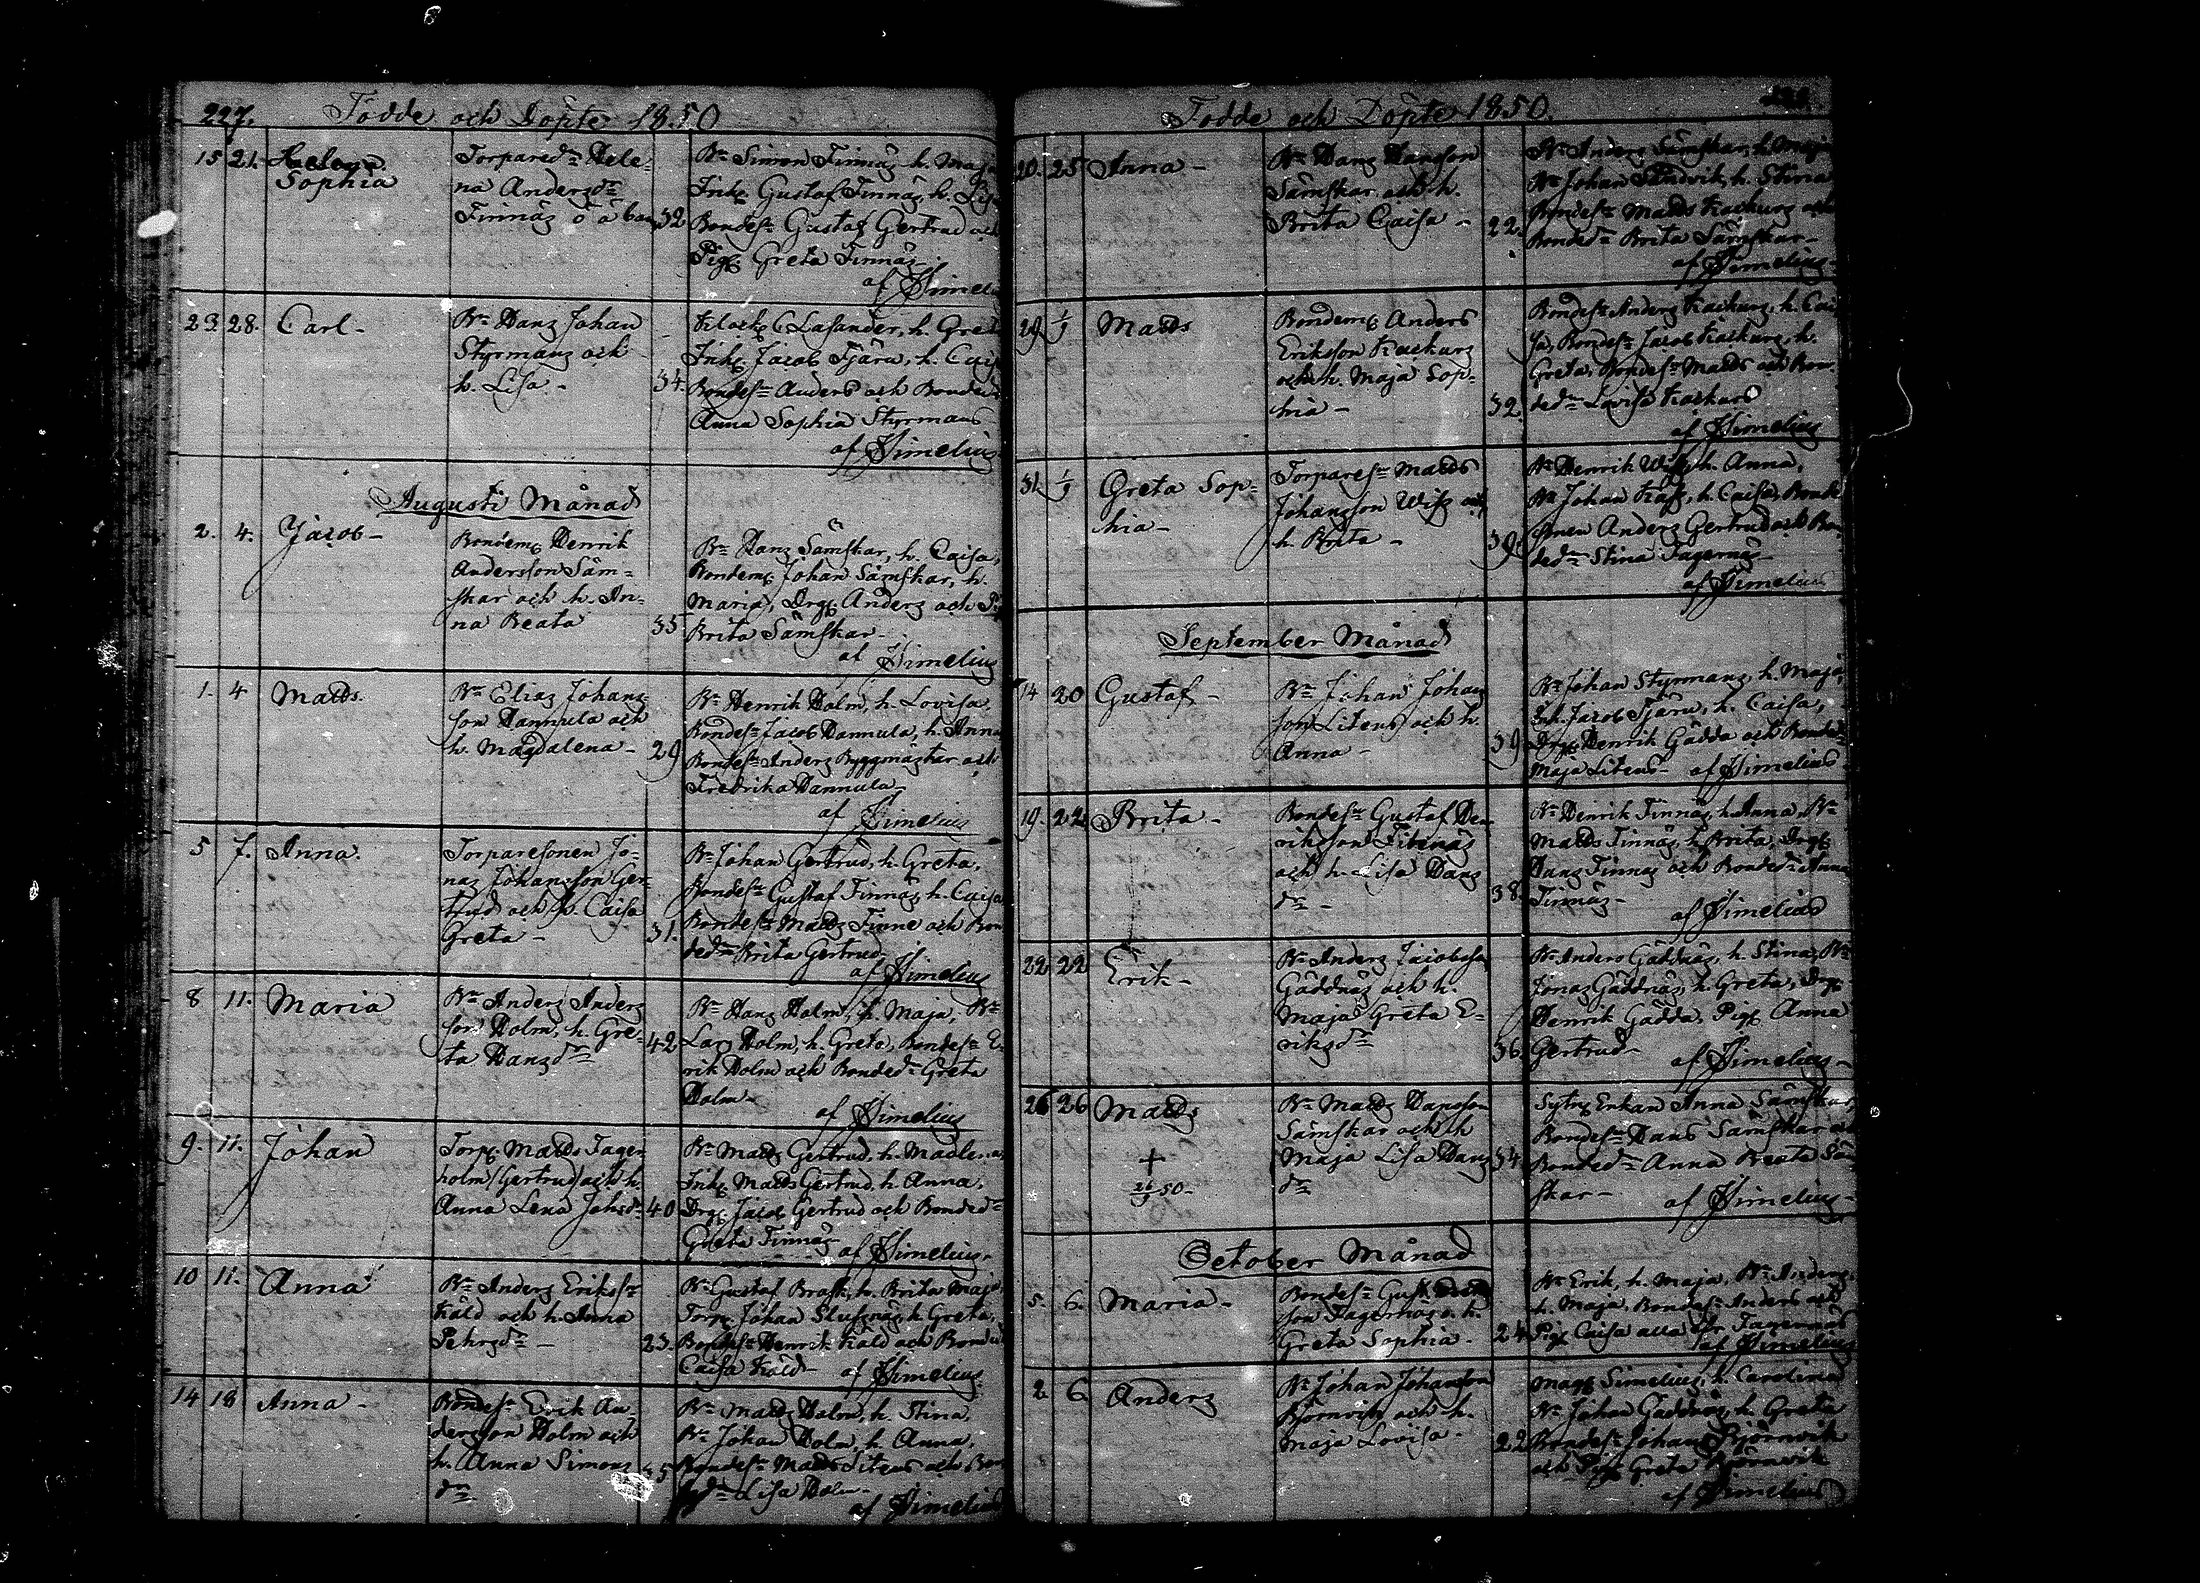 227.
Födde och Döpte 1850
15 21. Helena
Sophia
Torpared:r Hele-
na Andersd:r
Finnäs o ä ba 32
B:n Simon Finnäs h. Maja
Inh: Gustaf Finnäs, h. Lisa
Bondes:n Gustaf Gertrud och
Pig: Greta Finnäs
af Simelius
23. 28. Carl-
B:n Hans Johan
Styrmans och
h. Lisa - 34.
Klock: C Lasander, h. Greta
Inh: Jacob Tjäru, h. Caisa
Bondes:n Anders och Bonded:r
Anna Sophia Styrmans
af Simelius
Augusti Månad
2. 4. Jacob-
Bondem: Henrik
Andersson Säm-
skar och h. An-
na Beata 35
B:n Hans Sämskar, h. Caisa,
Bondem: Johan Sämskar, h.
Maria, Drg: Anders och Pi
Brita Sämskar-
af Simelius
1. 4 Matts.
B:n Elias Johans
son Hannula och
h. Magdalena - 29
B:n Henrik Holm, h. Lovisa,
Bondes:n Jacob Hannula, h. Anna
Bondes:n Anders Byggmästar och
Fredrika Hannula
af Simelius
5 7. Anna.
Torparesonen Jo-
nas Johansson Ger-
trud och h. Caisa
Greta - 31.
B:n Johan Gertrud, h. Greta,
Bondes:n Gustaf Finnäs, h. Caisa
Bondes:n Matts Finne och Bon
ded:r Brita Gertrud
af Simelius
8 11. Maria
B:n Anders Anders
son Holm, h. Gre-
ta Hansd:r 42
B:n Hans Holm, h. Maja, B:n
Lars Holm, h. Greta, Bondes:n E-
rik Holm och Bonded:r Greta
Holm-
af Simelius
9. 11. Johan
Torp: Matts Fager-
holm/Gertrud/ och h.
Anna Lena Johsd:r 40
B:n Matts Gertrud, h. Madlena
Inh: Matts Gertrud, h. Anna,
Drg: Jacob Gertrud och Bonded:r
Greta Finnäs
af Simelius-
10 11. Anna
B:n Anders Erikss:n
Kald och h. Anna
Pehrsd:r - 23.
B:n Gustaf Brask, h. Brita Maja
Torp: Johan Slussnäs, h Greta,
Bondes:n Henrik Kald och Bonded
Caisa Kald- af Simelius
14 18 Anna-
Bondes:n Erik An-
dersson Holm och
h. Anna Simons
d:r 35
B:n Matts Holm, h. Stina,
B:n Johan Holm, h. Anna,
Bondes:n Matts Litens och Bon
ded:r Lisa Holm-
af Simelius
Födde och Döpte 1850.
20. 25 Anna-
B:n Hans Hansson
Sämskar och h.
Brita Caisa - 22.
B:n Anders Sämskar, h. Maja
B:n Johan Sandvik, h. Stina
Bondes:n Matts Kackurs och
Bonded:r Brita Sämskar-
af Simelius-
29 1/9 Matts
Bondem: Anders
Eriksson Kackurs
och h. Maja Sop-
hia - 32
Bondes:n Anders Kackurs, h. Cai
sa, Bondes:n Jacob Kackurs, h.
Greta, Bondes:n Matts och Bon-
ded:r Lovisa Kackurs
af Simelius
31. 1/9 Greta Sop-
hia-
Torpares:n Matts
Johansson Wiss och
h. Brita - 39.
B:n Henrik Wiss, h. Anna,
B:n Johan Kass, h. Caisa, Bonde
sonen Anders Gertrud och Bon
ded:r Stina Fagernäs-
af Simelius
September Månad
14 20 Gustaf-
B:n Johan Johans
son Litens och h.
Anna- 39
B:n Johan Styrmans, h. Maja,
Inh. Jacob Tjäru, h. Caisa,
Drg: Henrik Gädda och Bonded:r
Maja Litens- af Simelius
19. 22. Brita-
Bondes:n Gustaf Hen-
riksson Finnäs
och h. Lisa Hans
d:r - 38.
B:n Henrik Finnäs, h. Anna, B:n
Matts Finnäs, h. Brita, Drg:
Hans Finnäs och Bonded:r Anna
Finnäs-
af Simelius
22 22 Erik-
B:n Anders Jacobsson
Gäddnäs och h.
Maja Greta E-
riksd:r 36.
B:n Anders Gäddnäs, h. Stina, B:n
Jonas Gäddnäs, h. Greta, Drg:
Henrik Gädda, Pig: Anna
Gertrud- af Simelius-
26 26 Matts
+
26/9 50-
B:n Matts Hansson
Sämskar och h
Maja Lisa Hans
d:r 34
Sytn: Enkan Anna Sämskar,
Bondes:n Hans Sämskar o
Bonded:r Anna Beata Säm
skar- af Simelius-
October Månad
5. 6. Maria-
Bondes:n Gust
son Fagernäs o. h.
Greta Sophia- 24
B:n Erik, h. Maja, B:n Anders,
h. Maja, Bondes:n Anders och
Pig: Caisa alla fr. Fagernäs
af Simelius
2. 6. Anders
B:n Johan Johansson
Björnvik och h.
Maja Lovisa- 22
Mag: Simelius, h. Carolina
B:n Johan Gäddnäs, h Greta
Bondes:n Johan Björnvik
och Pig: Greta Björnvik
af Simelius